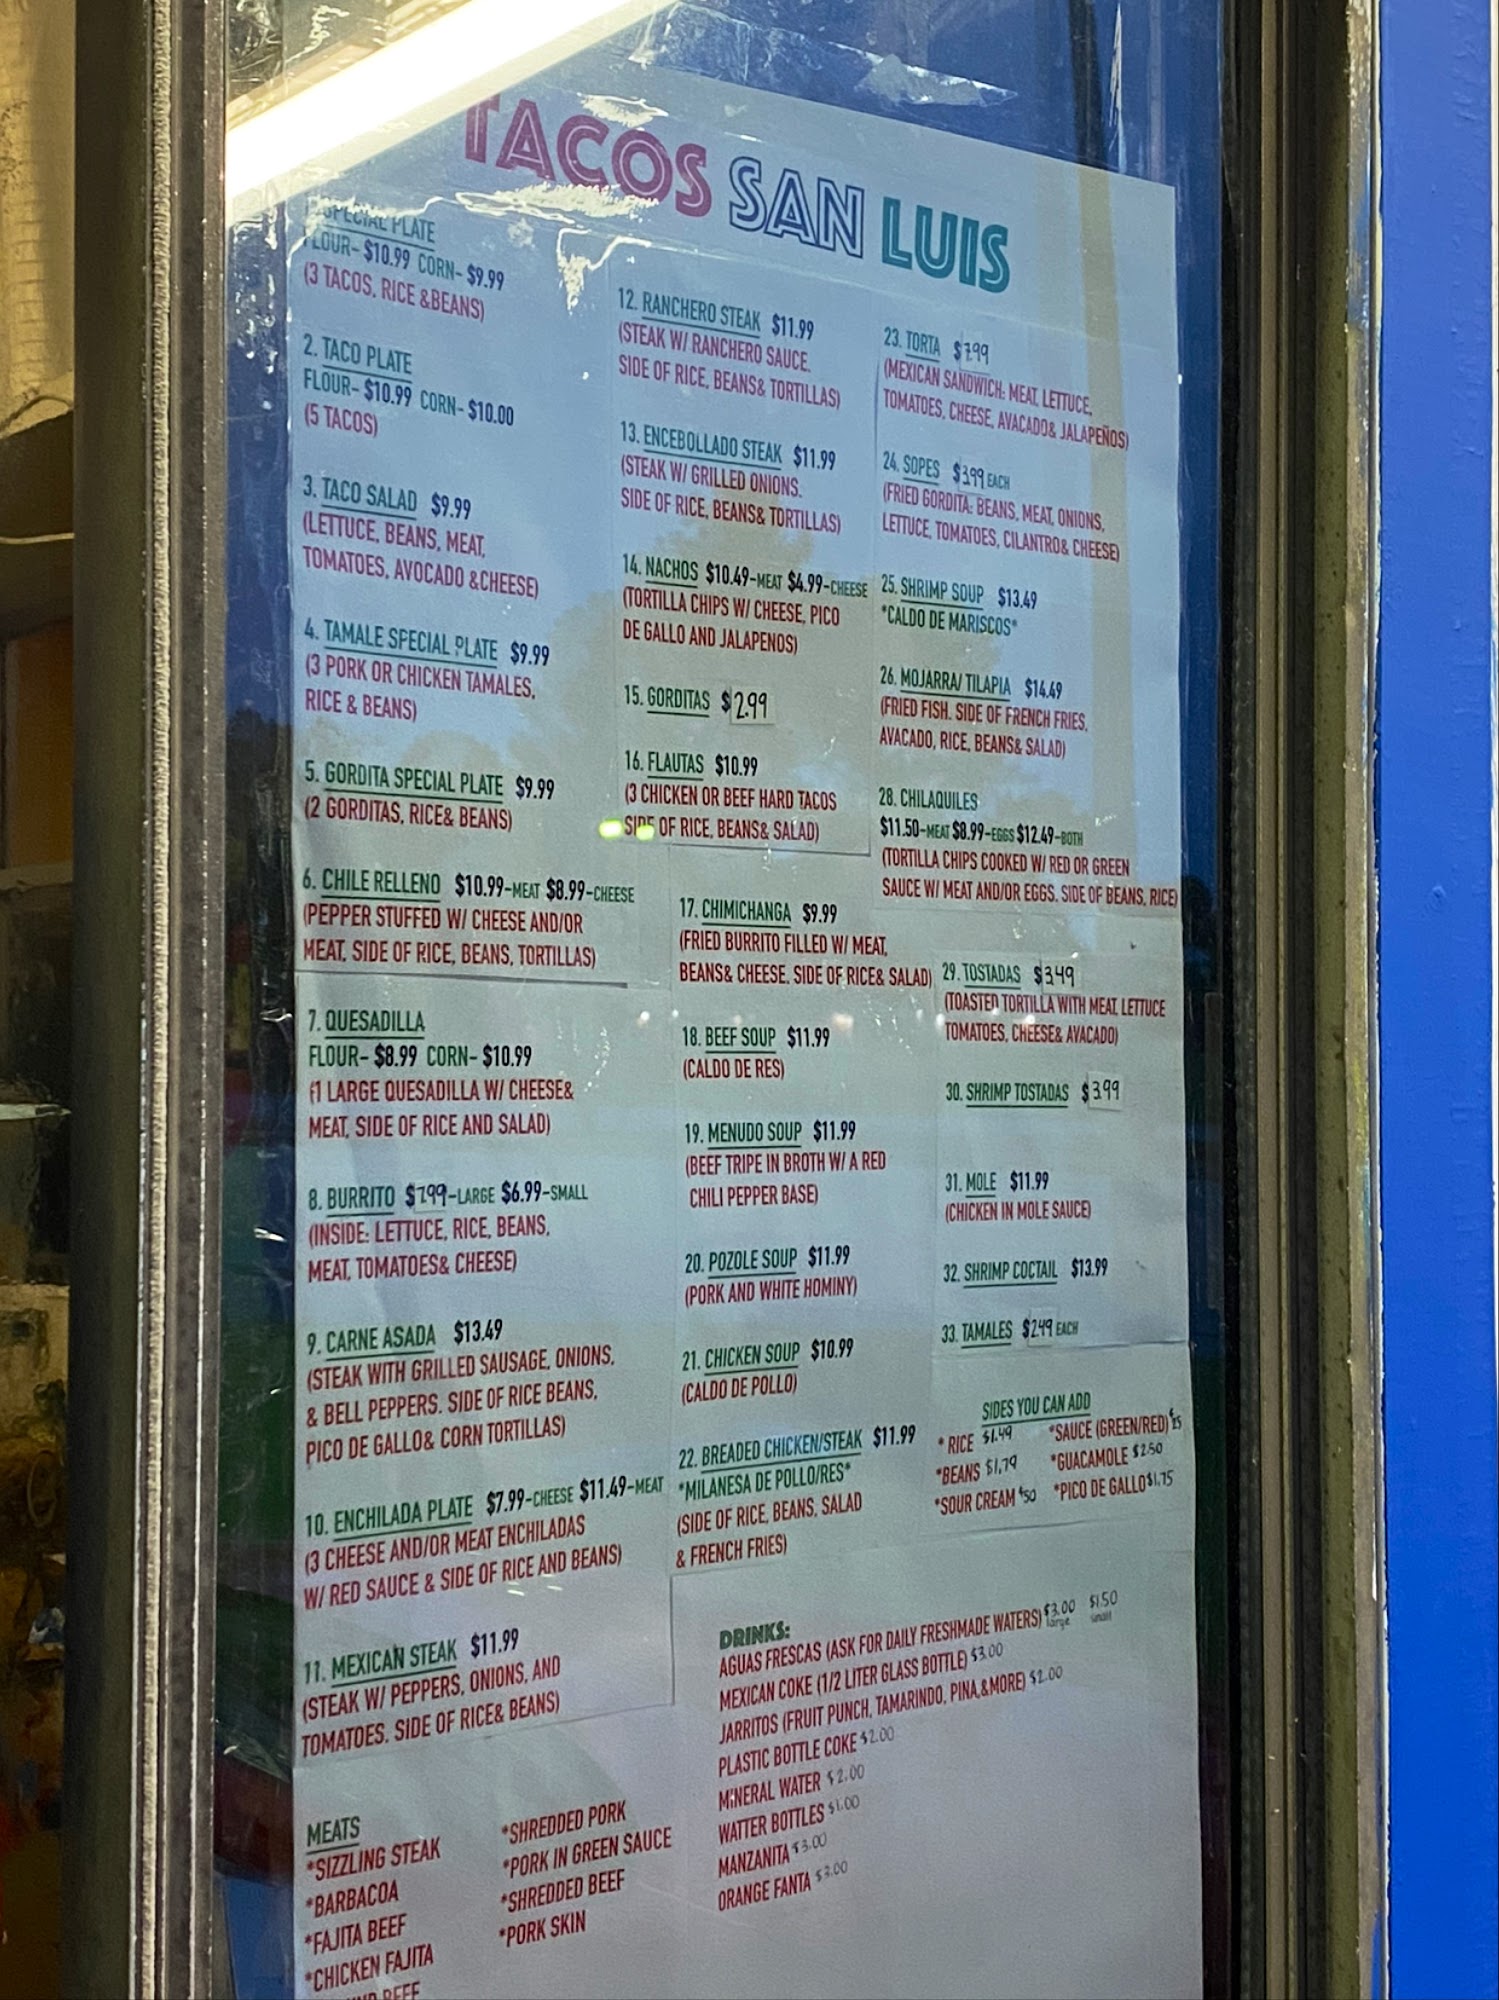 TACOS SAN LUIS
SPECIAL PLATE
FLOUR- $10.99 CORN- $9.99
(3 TACOS, RICE &BEANS)
2. TACO PLATE
FLOUR- $10.99 CORN- $10.00
(5 TACOS)
3. TACO SALAD $9.99
(LETTUCE, BEANS, MEAT,
TOMATOES, AVOCADO &CHEESE)
4. TAMALE SPECIAL PLATE $9.99
(3 PORK OR CHICKEN TAMALES,
RICE & BEANS)
5. GORDITA SPECIAL PLATE $9.99
(2 GORDITAS, RICE& BEANS)
6. CHILE RELLENO $10.99-MEAT $8.99-CHEESE
(PEPPER STUFFED W/ CHEESE AND/OR
MEAT, SIDE OF RICE, BEANS, TORTILLAS)
7. QUESADILLA
FLOUR- $8.99 CORN- $10.99
(1 LARGE QUESADILLA W/ CHEESE&
MEAT, SIDE OF RICE AND SALAD)
8. BURRITO $7.99-LARGE $6.99-SMALL
(INSIDE: LETTUCE, RICE, BEANS,
MEAT, TOMATOES& CHEESE)
9. CARNE ASADA $13.49
(STEAK WITH GRILLED SAUSAGE, ONIONS,
& BELL PEPPERS. SIDE OF RICE BEANS,
PICO DE GALLO& CORN TORTILLAS)
10. ENCHILADA PLATE $7.99-CHEESE $11.49-MEAT
(3 CHEESE AND/OR MEAT ENCHILADAS
W/ RED SAUCE & SIDE OF RICE AND BEANS)
11. MEXICAN STEAK $11.99
(STEAK W/ PEPPERS, ONIONS, AND
TOMATOES. SIDE OF RICE& BEANS)
MEATS
*SIZZLING STEAK
*BARBACOA
*FAJITA BEEF
*CHICKEN FAJITA
BEEF
*SHREDDED PORK
*PORK IN GREEN SAUCE
*SHREDDED BEEF
*PORK SKIN
12. RANCHERO STEAK $11.99
(STEAK W/ RANCHERO SAUCE,
SIDE OF RICE, BEANS& TORTILLAS)
13. ENCEBOLLADO STEAK $11.99
(STEAK W/ GRILLED ONIONS.
SIDE OF RICE, BEANS& TORTILLAS)
14. NACHOS $10.49-MEAT $4.99-CHEESE
(TORTILLA CHIPS W/ CHEESE, PICO
DE GALLO AND JALAPENOS)
15. GORDITAS $2.99
16. FLAUTAS $10.99
(3 CHICKEN OR BEEF HARD TACOS
SIDE OF RICE, BEANS& SALAD)
17. CHIMICHANGA $9.99
(FRIED BURRITO FILLED W/ MEAT,
BEANS& CHEESE. SIDE OF RICE& SALAD)
18. BEEF SOUP $11.99
(CALDO DE RES)
19. MENUDO SOUP $11.99
(BEEF TRIPE IN BROTH W/ A RED
CHILI PEPPER BASE)
20. POZOLE SOUP $11.99
(PORK AND WHITE HOMINY)
21. CHICKEN SOUP $10.99
(CALDO DE POLLO)
22. BREADED CHICKEN/STEAK $11.99
*MILANESA DE POLLO/RES*
(SIDE OF RICE, BEANS, SALAD
& FRENCH FRIES)
23. TORTA $7.99
(MEXICAN SANDWICH: MEAT, LETTUCE,
TOMATOES, CHEESE, AVACADO& JALAPEÑOS)
24. SOPES $3.99 EACH
(FRIED GORDITA: BEANS, MEAT, ONIONS,
LETTUCE, TOMATOES, CILANTRO& CHEESE)
25. SHRIMP SOUP $13.49
*CALDO DE MARISCOS*
26. MOJARRA/ TILAPIA $14.49
(FRIED FISH. SIDE OF FRENCH FRIES,
AVACADO, RICE, BEANS& SALAD)
28. CHILAQUILES
$11.50-MEAT $8.99-EGGS $12.49-BOTH
(TORTILLA CHIPS COOKED W/ RED OR GREEN
SAUCE W/ MEAT AND/OR EGGS. SIDE OF BEANS, RICE)
29. TOSTADAS $3.49
(TOASTED TORTILLA WITH MEAT, LETTUCE
TOMATOES, CHEESE& AVACADO)
30. SHRIMP TOSTADAS $3.99
31. MOLE $11.99
(CHICKEN IN MOLE SAUCE)
32. SHRIMP COCTAIL $13.99
33. TAMALES $2.49 EACH
SIDES YOU CAN ADD
*RICE $1.49
*BEANS $1.79
*SOUR CREAM $50
*SAUCE (GREEN/RED)
*GUACAMOLE $2.50
*PICO DE GALLO $1.75
DRINKS:
AGUAS FRESCAS (ASK FOR DAILY FRESHMADE WATERS) $3.00 large $1.50 small
MEXICAN COKE (1/2 LITER GLASS BOTTLE) $3.00
JARRITOS (FRUIT PUNCH, TAMARINDO, PINA,&MORE) $2.00
PLASTIC BOTTLE COKE $2.00
MINERAL WATER $2.00
WATTER BOTTLES $1.00
MANZANITA $3.00
ORANGE FANTA $3.00